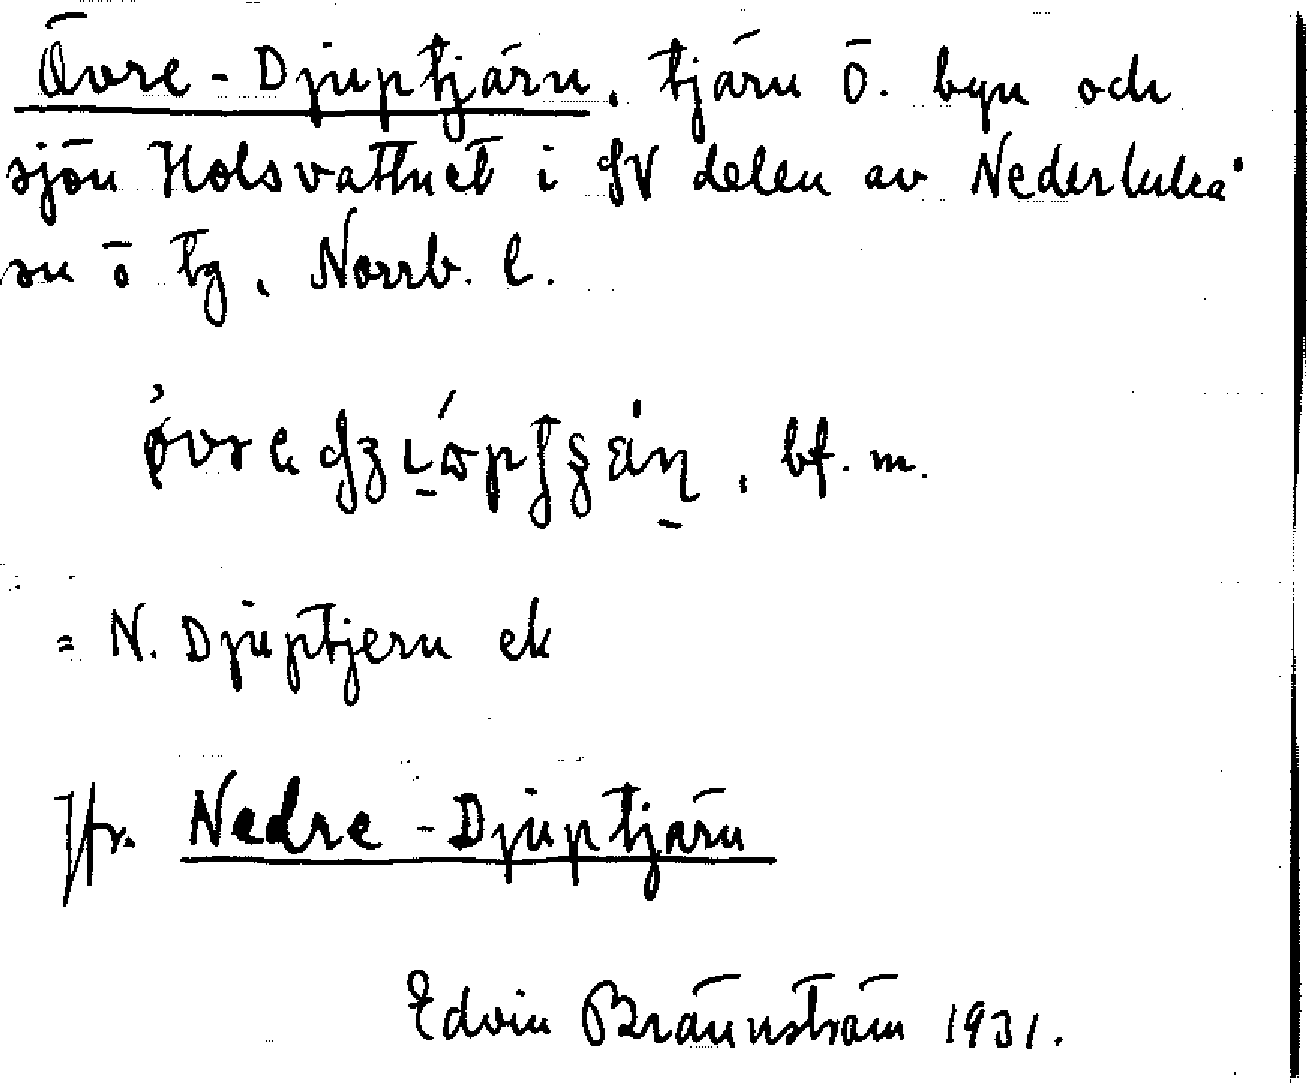 Övre-Djuptjärn, tjärn ö. byn och
sjön Holsvattnet i SV delen av Nederluleå
sn ö tg, Norrb. l.
bf. m.
= N. Djuptjern ek
Jfr. Nedre-Djuptjärn
Edvin Brännström 1931.